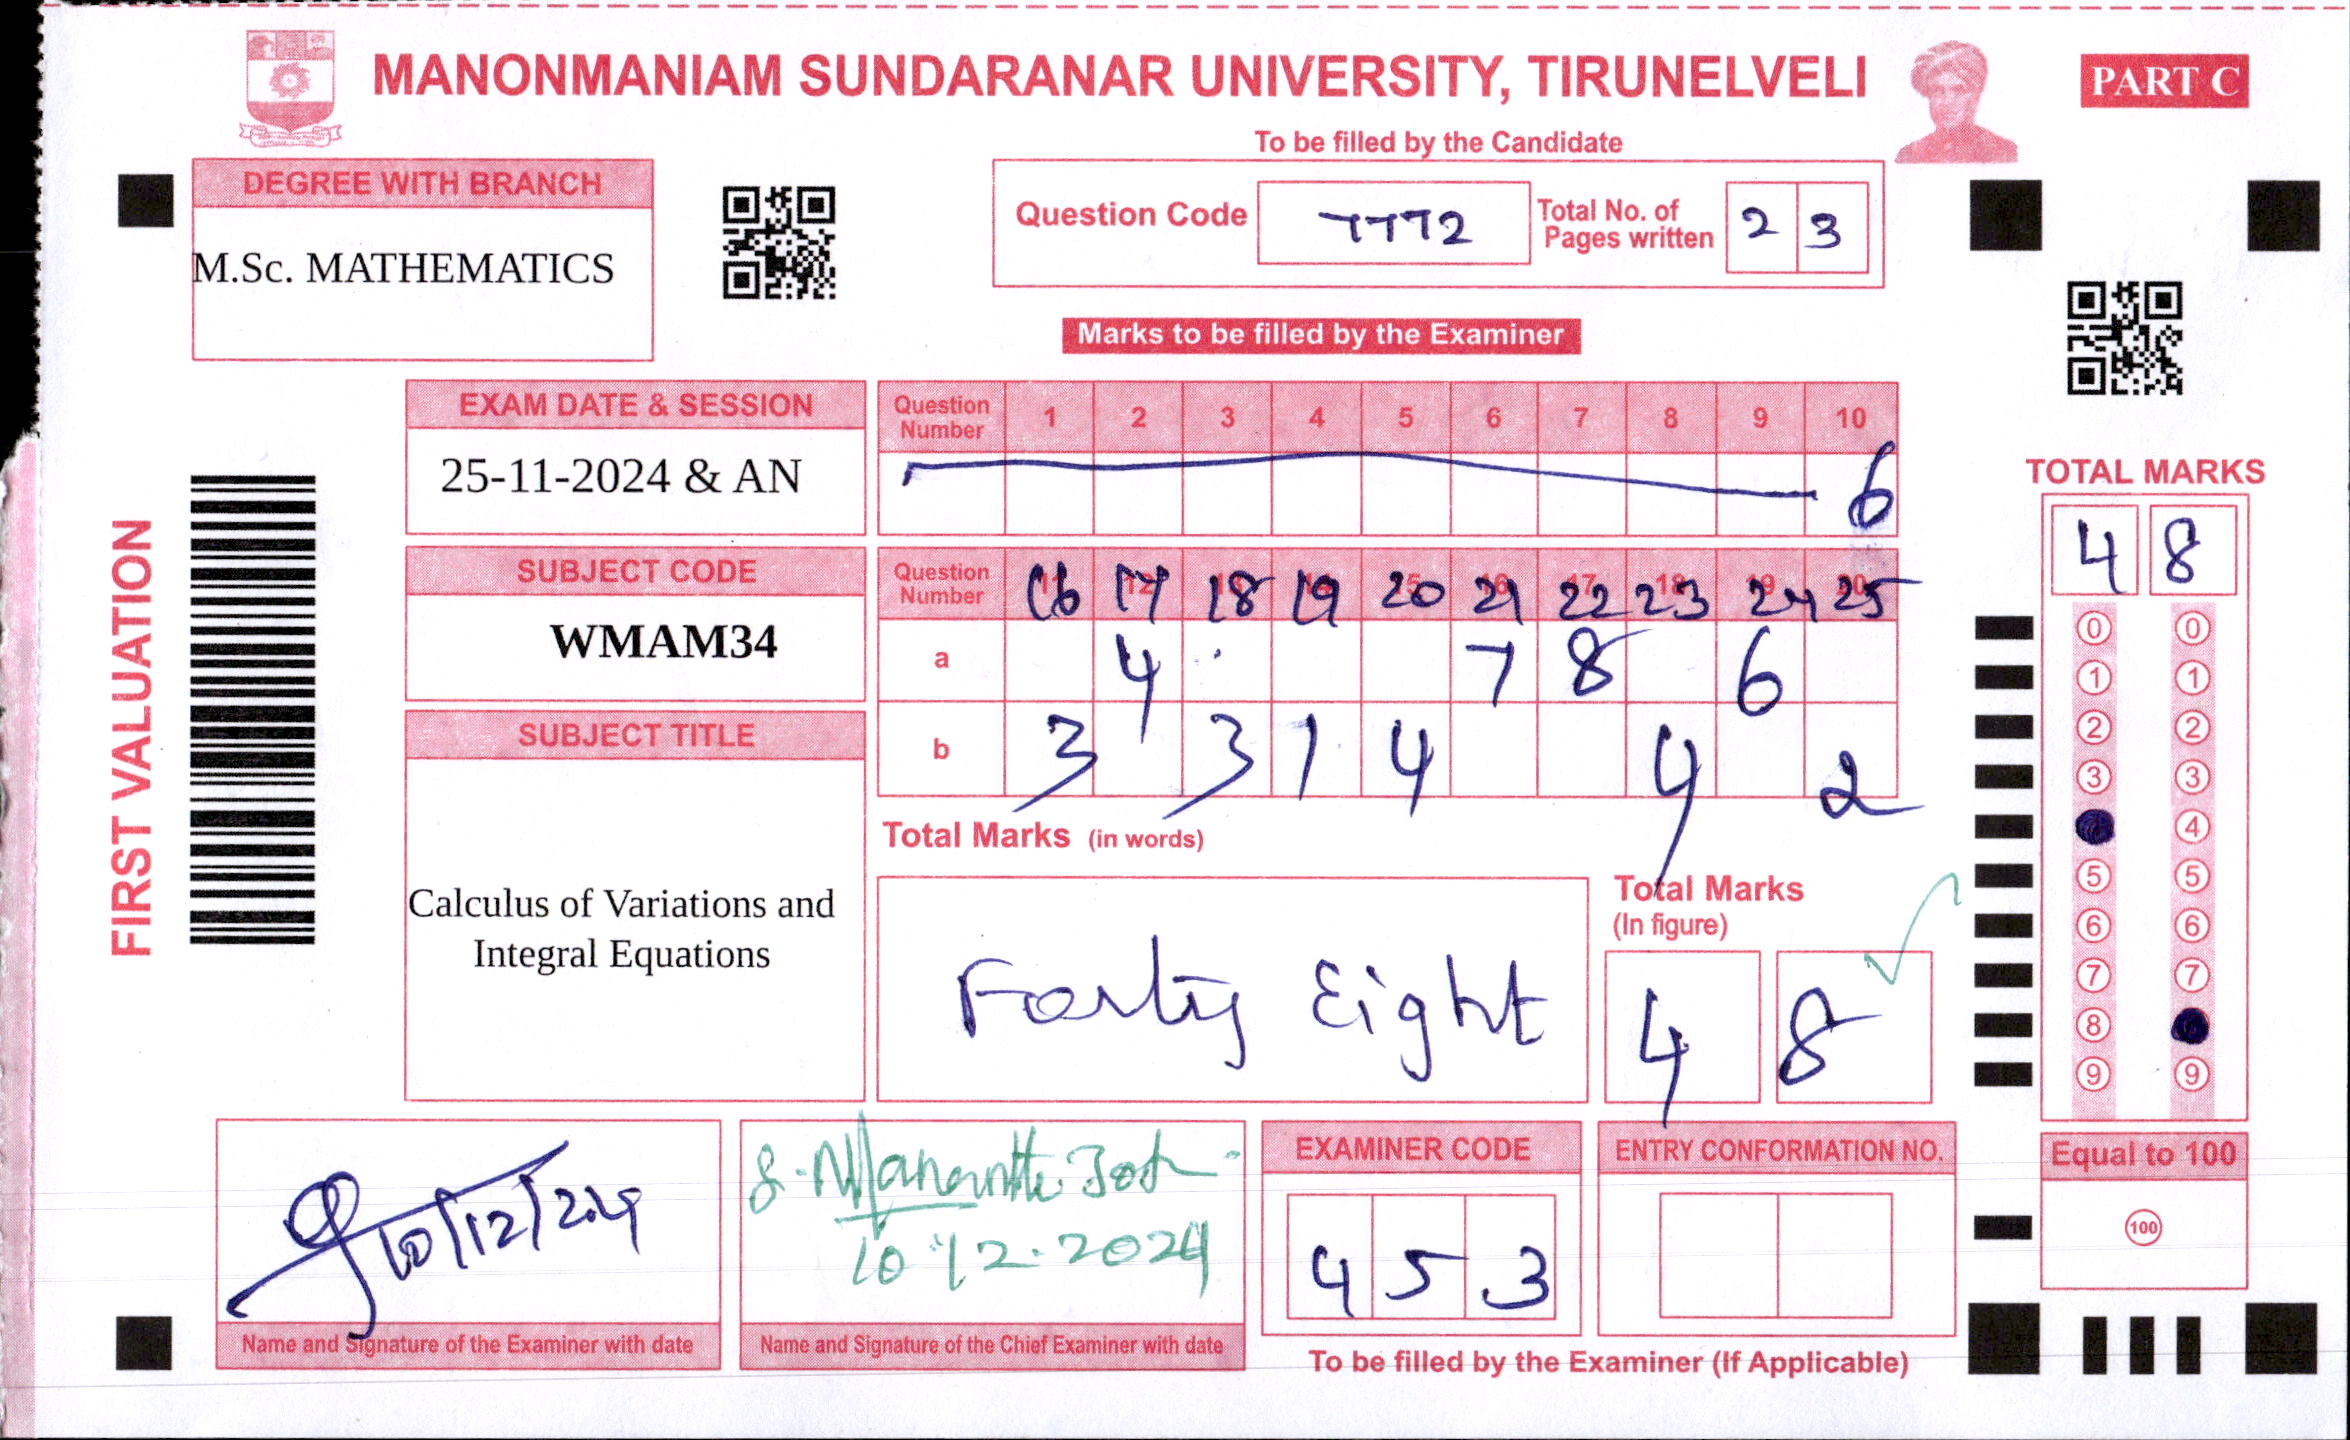 MANONMANIAM SUNDARANAR UNIVERSITY, TIRUNELVELI
PART C
To be filled by the Candidate
DEGREE WITH BRANCH
M.Sc. MATHEMATICS
Question Code 7772 Total No. of Pages written 2 3
Marks to be filled by the Examiner
FIRST VALUATION
EXAM DATE & SESSION
25-11-2024 & AN
Question Number 1 2 3 4 5 6 7 8 9 10
6
SUBJECT CODE
WMAM34
Question Number 16 17 18 19 20 21 22 23 24 25
a 4 7 8 6
b 3 3 1 4 4 2
SUBJECT TITLE
Calculus of Variations and
Integral Equations
Total Marks (in words)
Forty Eight
Total Marks
(In figure)
4 8
TOTAL MARKS
4 8
0 0
1 1
2 2
3 3
4
5 5
6 6
7 7
8
9 9
Equal to 100
100
10/12/24
Name and Signature of the Examiner with date
10.12.2024
Name and Signature of the Chief Examiner with date
EXAMINER CODE
4 5 3
ENTRY CONFORMATION NO.
To be filled by the Examiner (If Applicable)